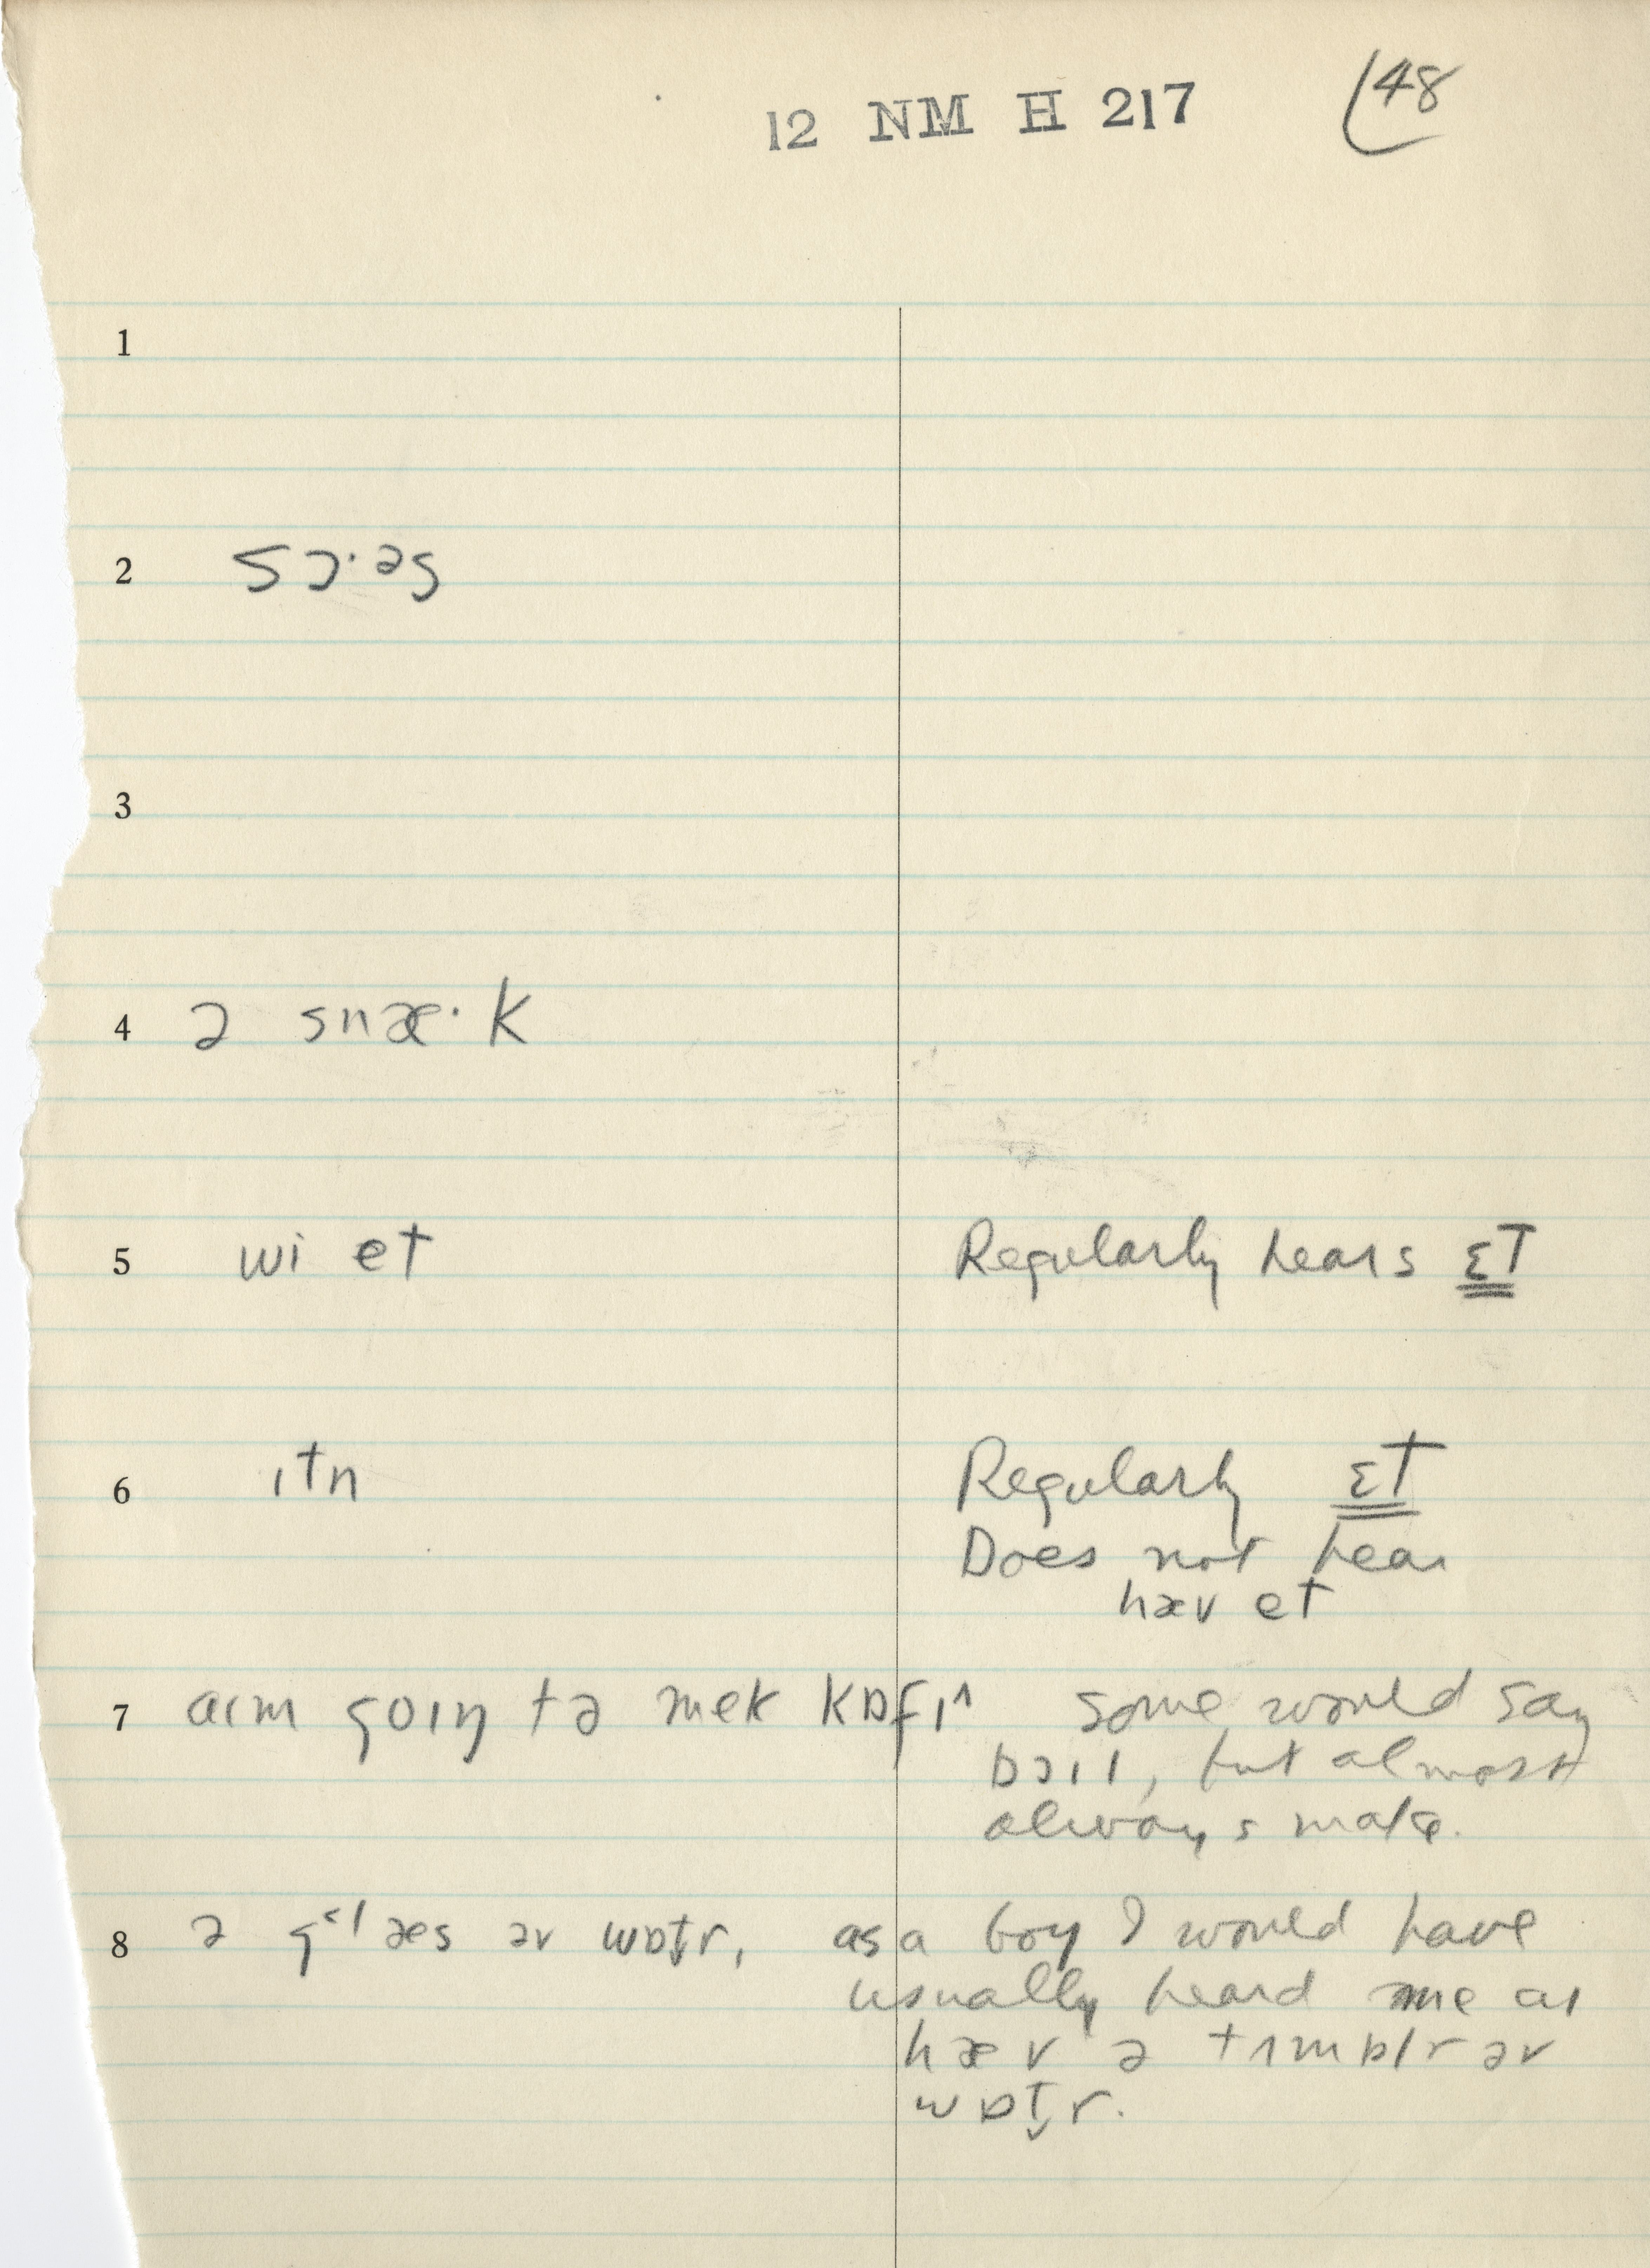 12 NM H 217 48
1
2 sɔ·əs
3
4 ə snæ·k
5 wi et Regularly hears ɛt
6 ɪtn Regularly ɛt
Does not hear
hæv et
7 aɪm goɪŋ tə mek kɒfɪ^ some would say
bɔɪl, but almost
always make.
8 ə g˂læs əv wɒt̬r, as a boy I would have
usually heard me aɪ
hæv ə tʌmblr əv
wɒt̬r.